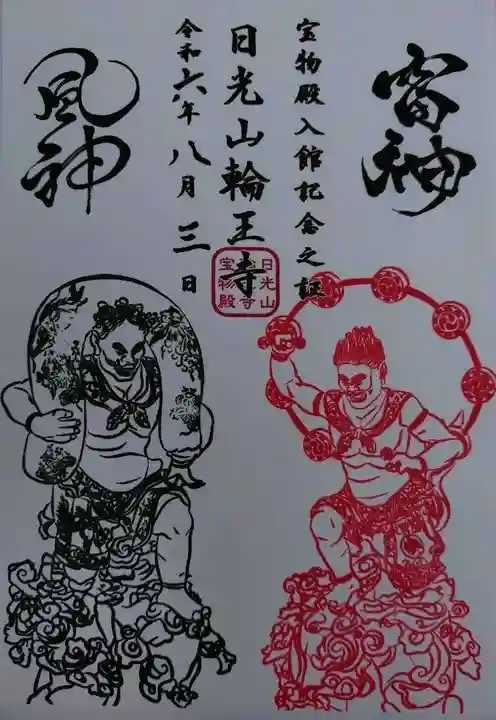 雷神
宝物殿入館記念之証
日光山輪王寺
令和六年八月三日
風神
日光山
宝物殿